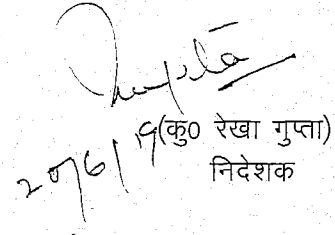 20/6/19
(कु0 रेखा गुप्ता)
निदेशक